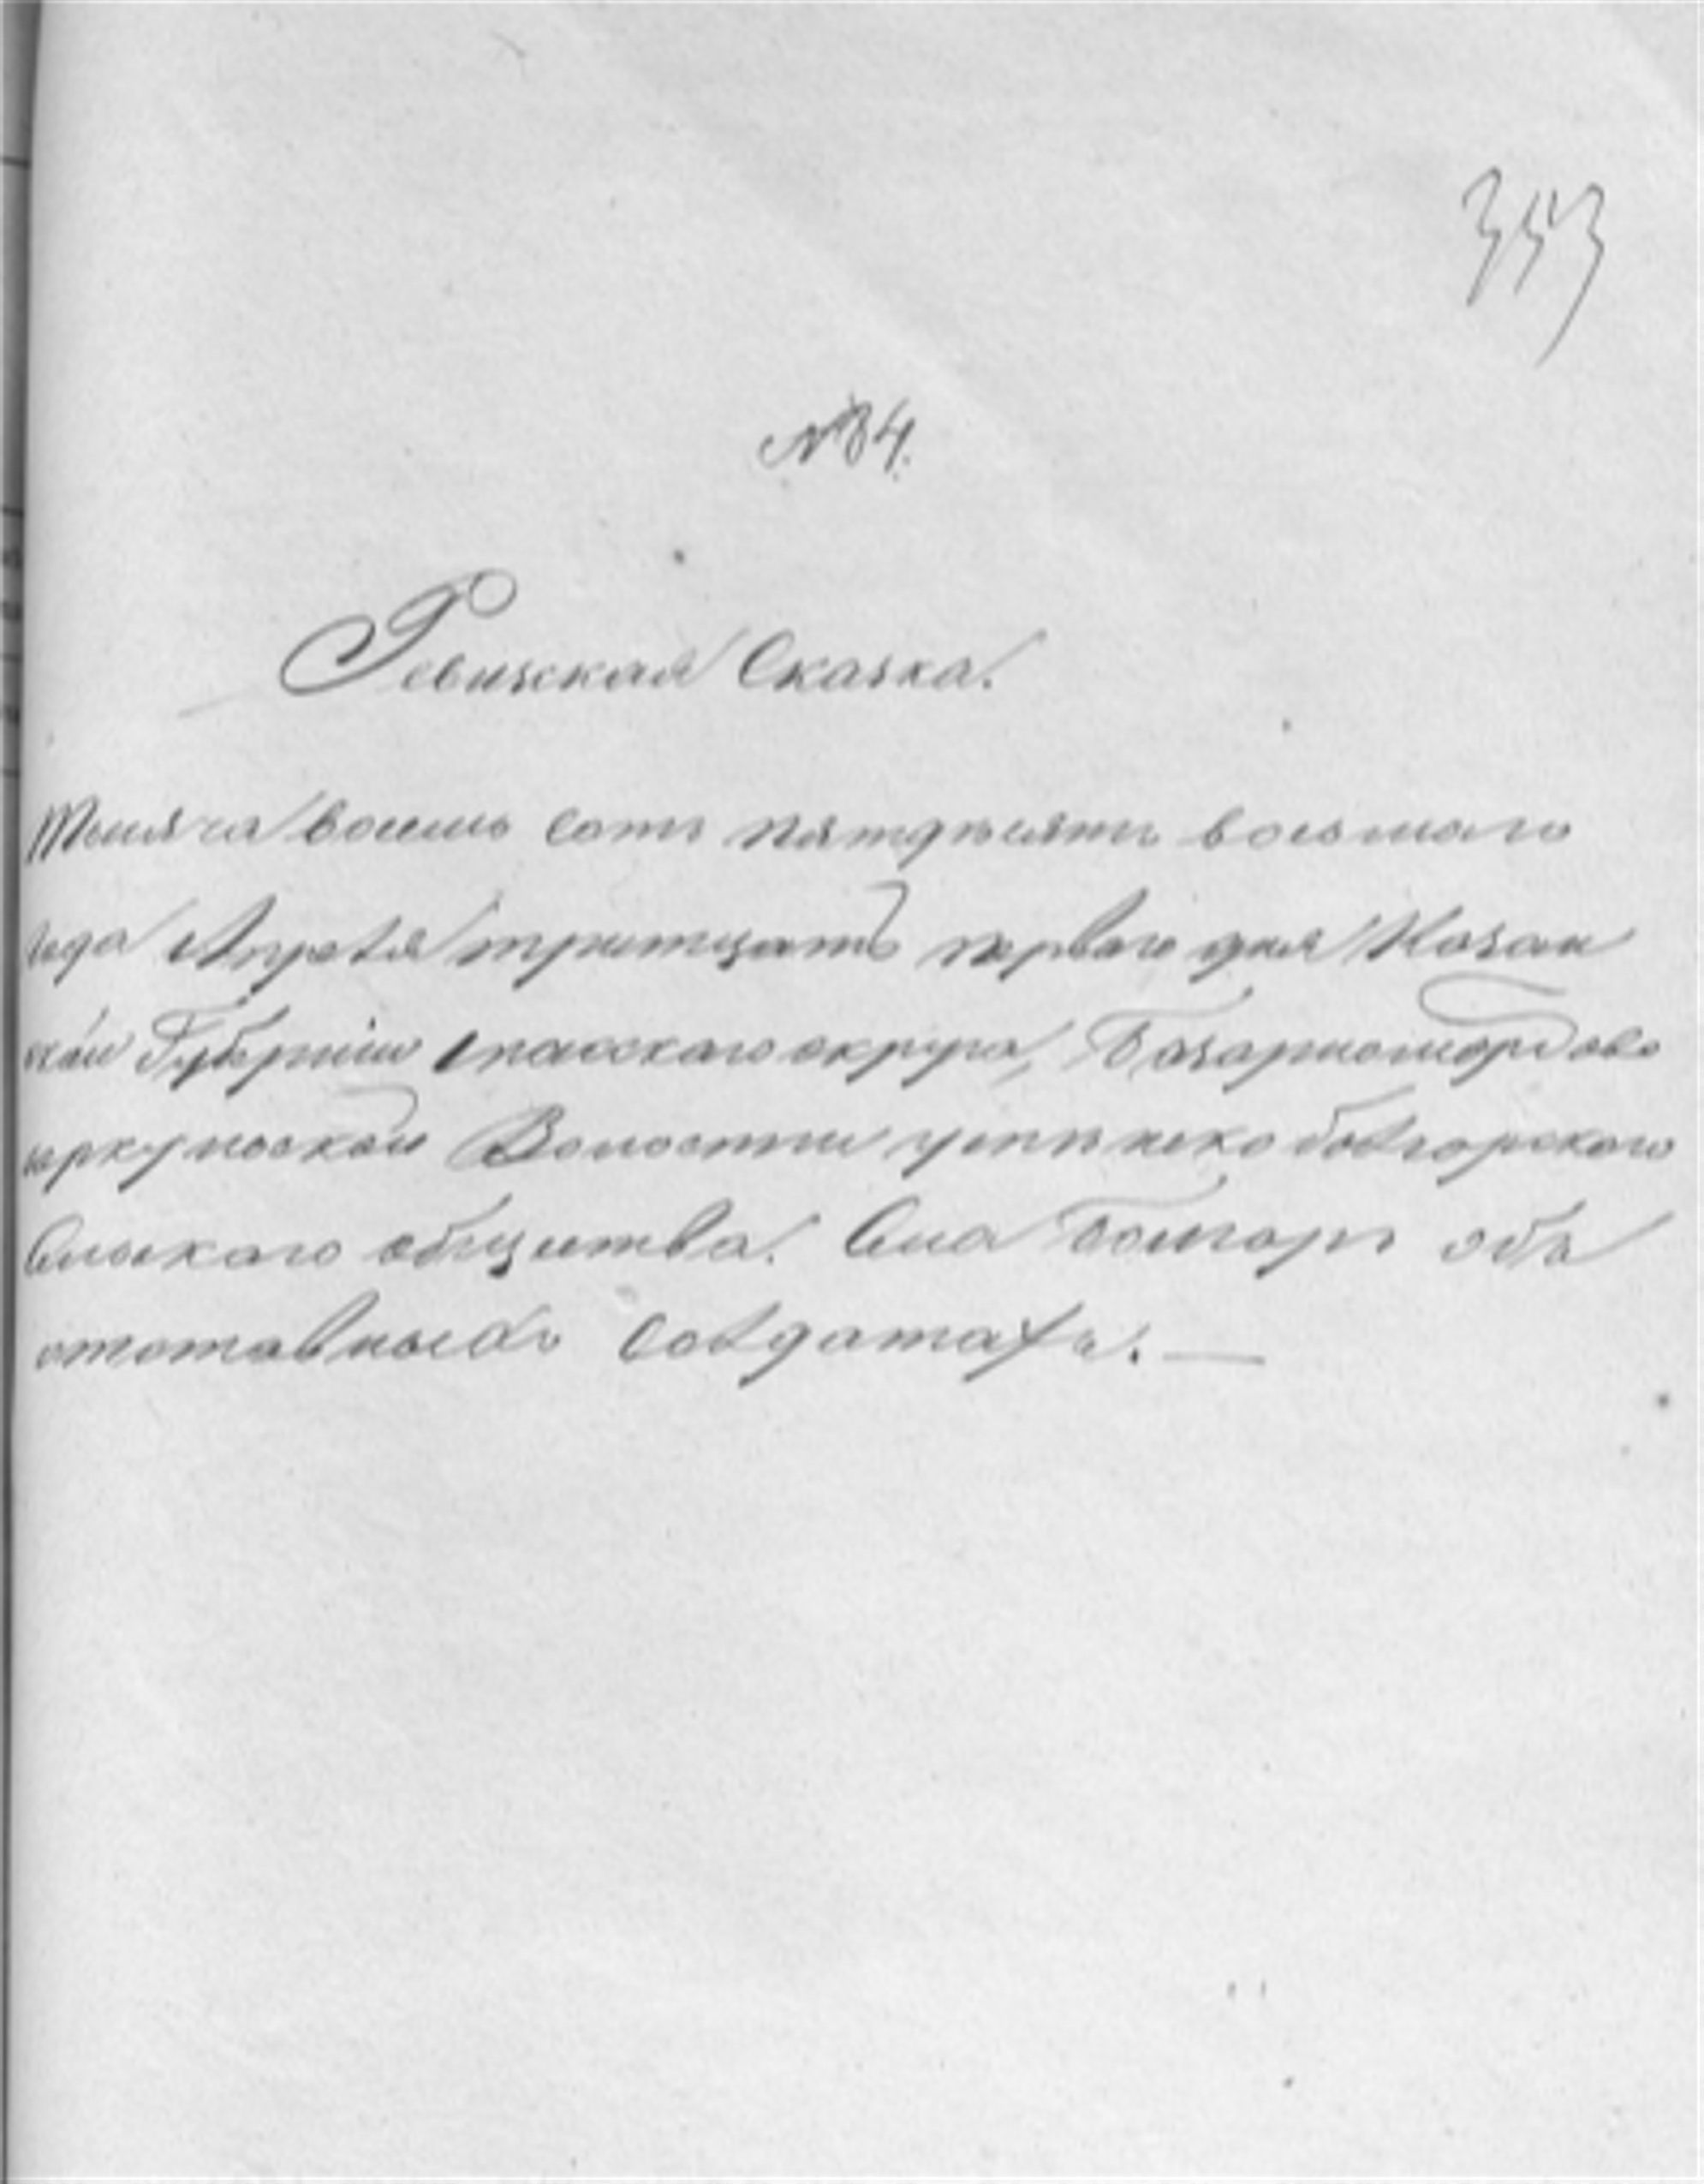 353
№84.
Ревизская Сказка.
Тысяча восемь сотъ пятдѣсятъ восьмого
года Апреля тритцать перваго дня Казан
ской Губерніи спасскаго округа, Базарномордово
юркульской Волости успѣнско болгорскаго
Сельскаго общества. Села Болгоръ объ
отставныхъ Солдатахъ. —